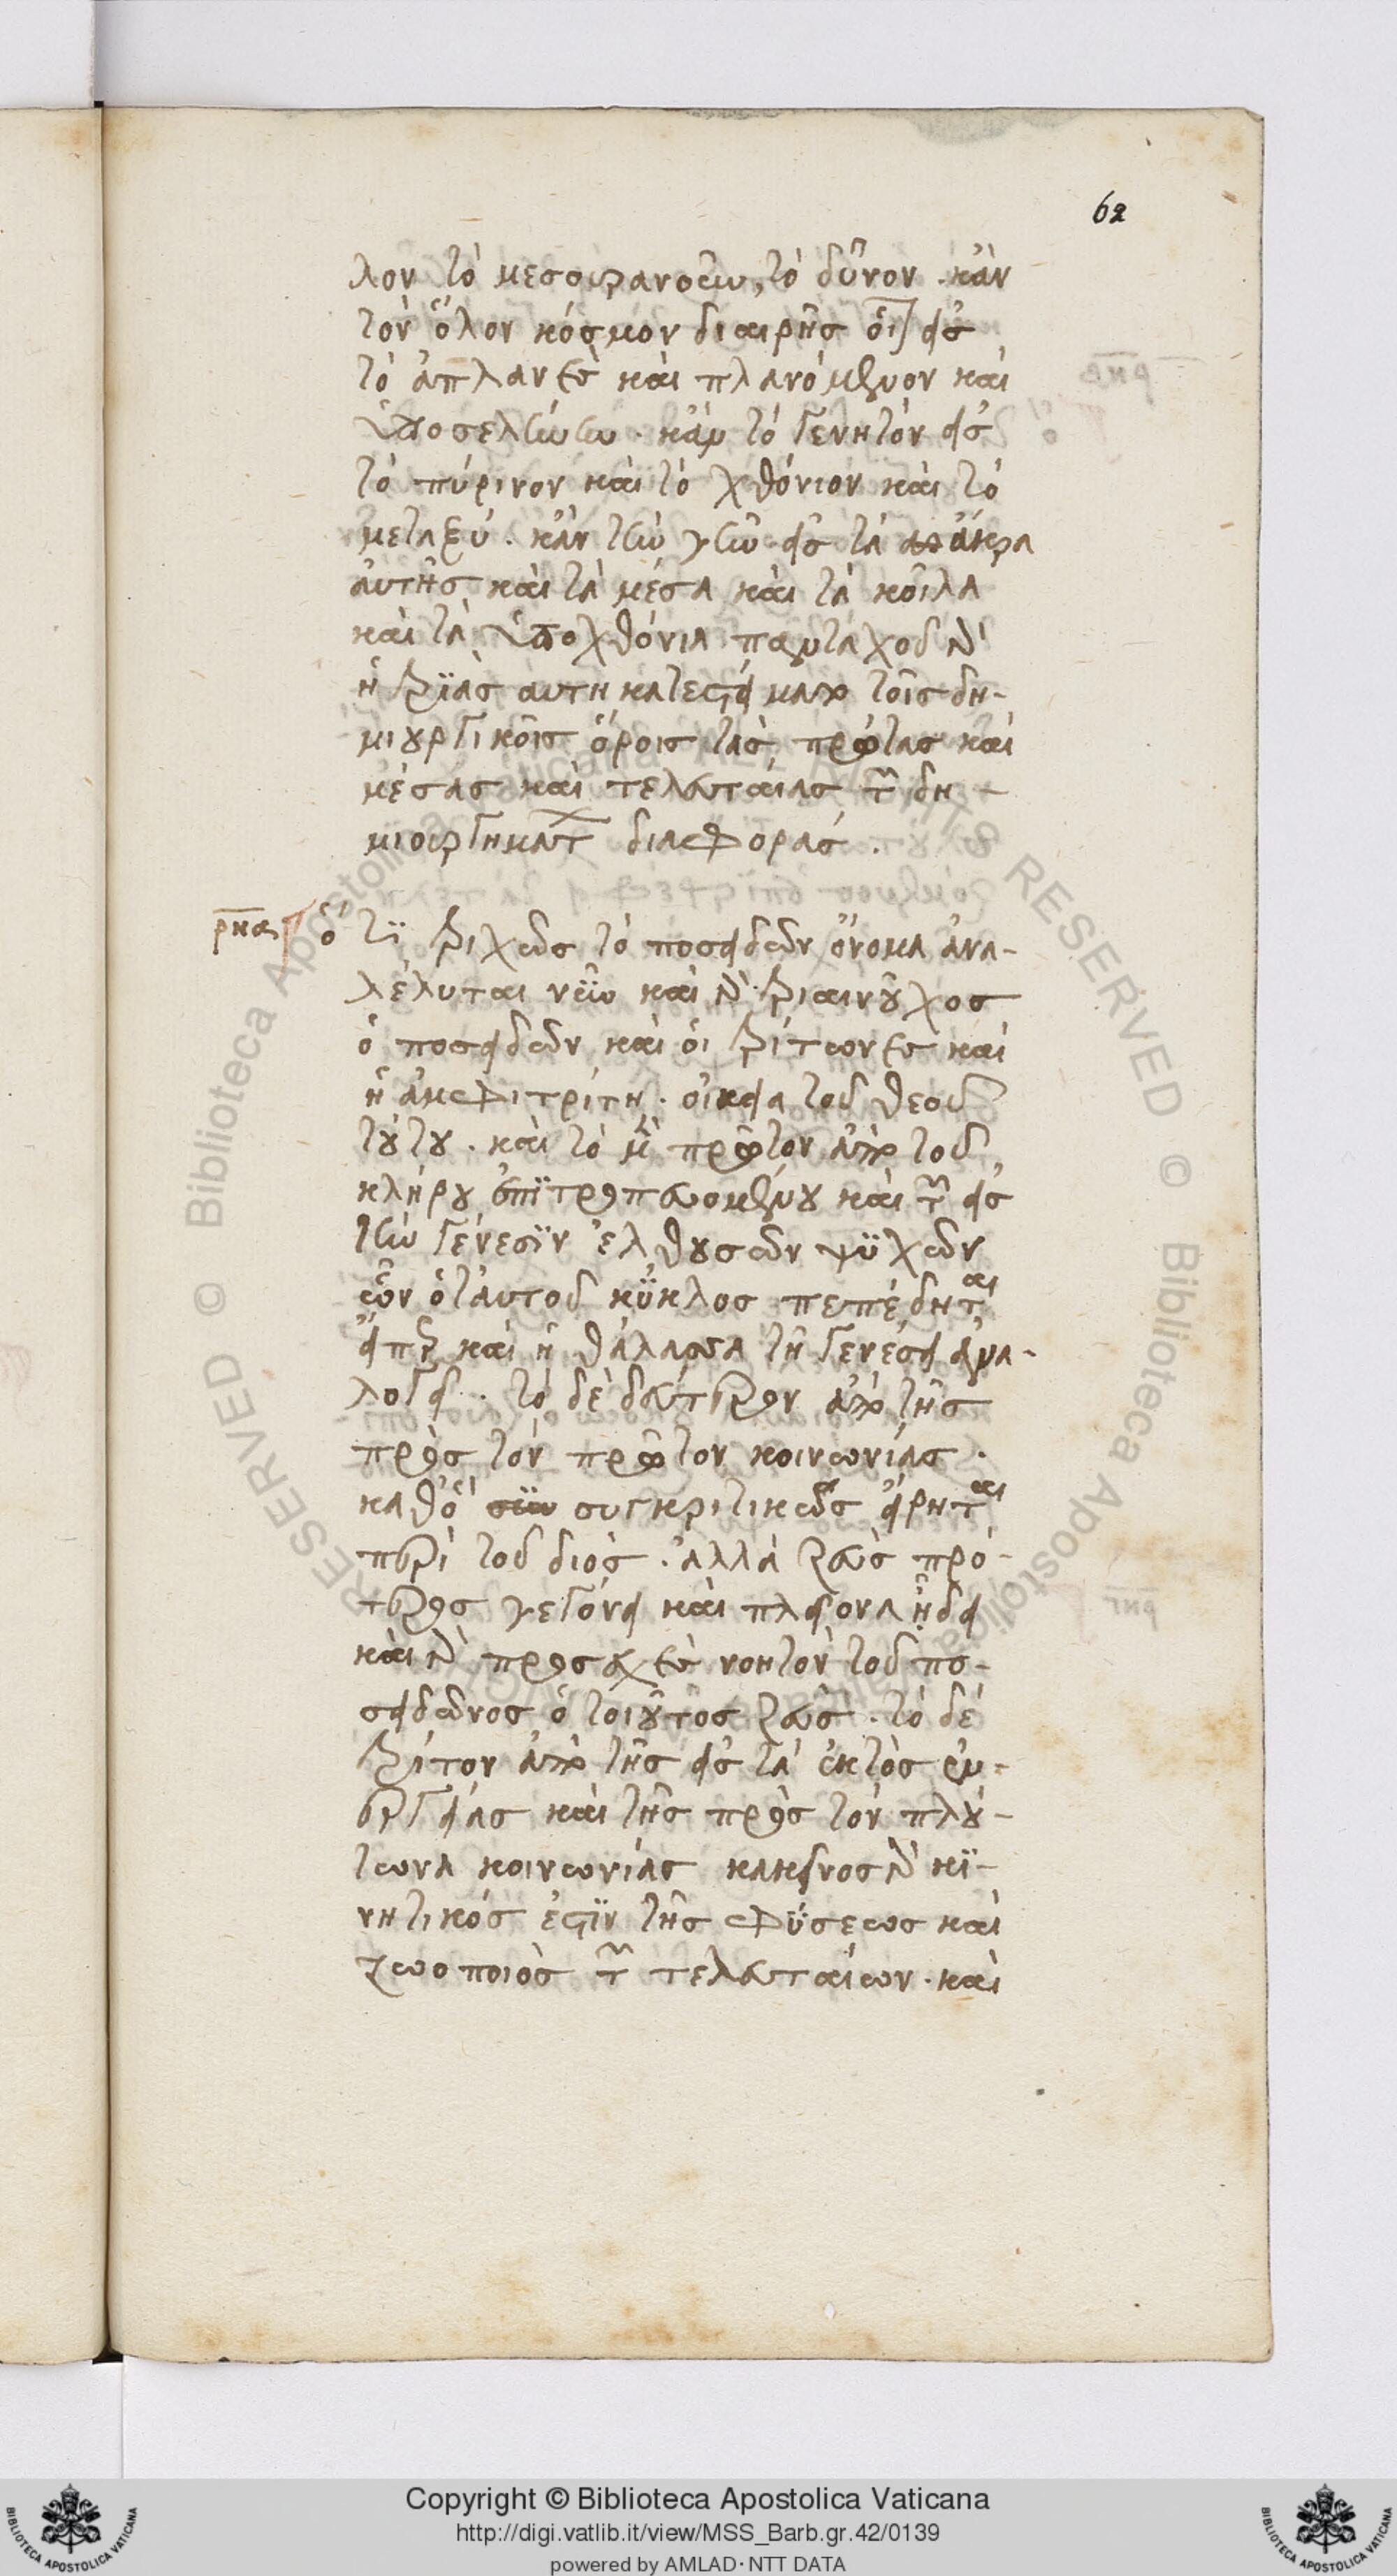 62
λον τὸ μεσουρανοῦν, τὸ δῦνον. κἀν
τὸν ὅλον κόσμον διαιρῆς οἷ εἰς
τὸ ἀπλανὲς καὶ πλανόμενον καὶ
ὑποσελήνην. κἀν τὸ γενητὸν εἰς
τὸ πύρινον καὶ τὸ χθόνιον καὶ τὸ
μεταξύ. κἀν τὴν γῆν εἰς τὰ ἄκρα
αὐτῆς καὶ τὰ μέσα καὶ τὰ κοῖλα
καὶ τὰ ὑποχθόνια πανταχοῦ δὴ
ἡ τριὰς αυτη τοῖς δη-
μιουργικοῖς ὅροις τὰς πρώτας καὶ
μέσας καὶ τελευταίας τῶν δη-
μιουργημάτων διαφοράς.
ρνα ὅτι τριχῶς τὸ ποσειδῶν ὄνομα ἀνα-
λέλυται νῦν καὶ γὰρ τριαινοῦχος
ὁ ποσειδῶν καὶ οἱ τρίτωνες καὶ
ἡ ἀμφιτρίτη. οἰκεῖα τοῦ θεοῦ
τούτου. καὶ τὸ μὲν πρῶτον ἀπὸ τοῦ
κλήρου ἐπιτροπευομένου καὶ τῶν εἰς
τὴν γένεσιν ἐλθουσῶν ψυχῶν
ὧν ὁ ταυτοῦ κύκλος πεπέδηται
εἴπερ καὶ ἡ θάλασσα τῆ γενέσει ἀνα-
λογεῖ. τὸ δὲ δεύτερον ἀπὸ τῆς
πρὸς τὸν πρῶτον κοινωνίας.
καθὸ συγκριτικῶς εἴρηται
περὶ τοῦ διός. ἀλλὰ ζεὺς πρό-
τερος γεγόνει καὶ πλείονα ᾔδει
καὶ γὰρ προσεχὲς νοητὸν τοῦ πο-
σειδῶνος ὁ τοιοῦτος ζεύς. τὸ δὲ
τρίτον ἀπὸ τῆς εἰς τὰ ἐκτὸς ἐν-
εργείας καὶ τῆς πρὸς τὸν πλού-
τωνα κοινωνίας κακεῖνος γὰρ κι-
νητικός ἐστιν τῆς φύσεως καὶ
ζωοποιὸς τῶν τελευταίων. καὶ
Copyright © Biblioteca Apostolica Vaticana
http://digi.vatlib.it/view/MSS_Barb.gr.42/0139
powered by AMLAD·NTT DATA